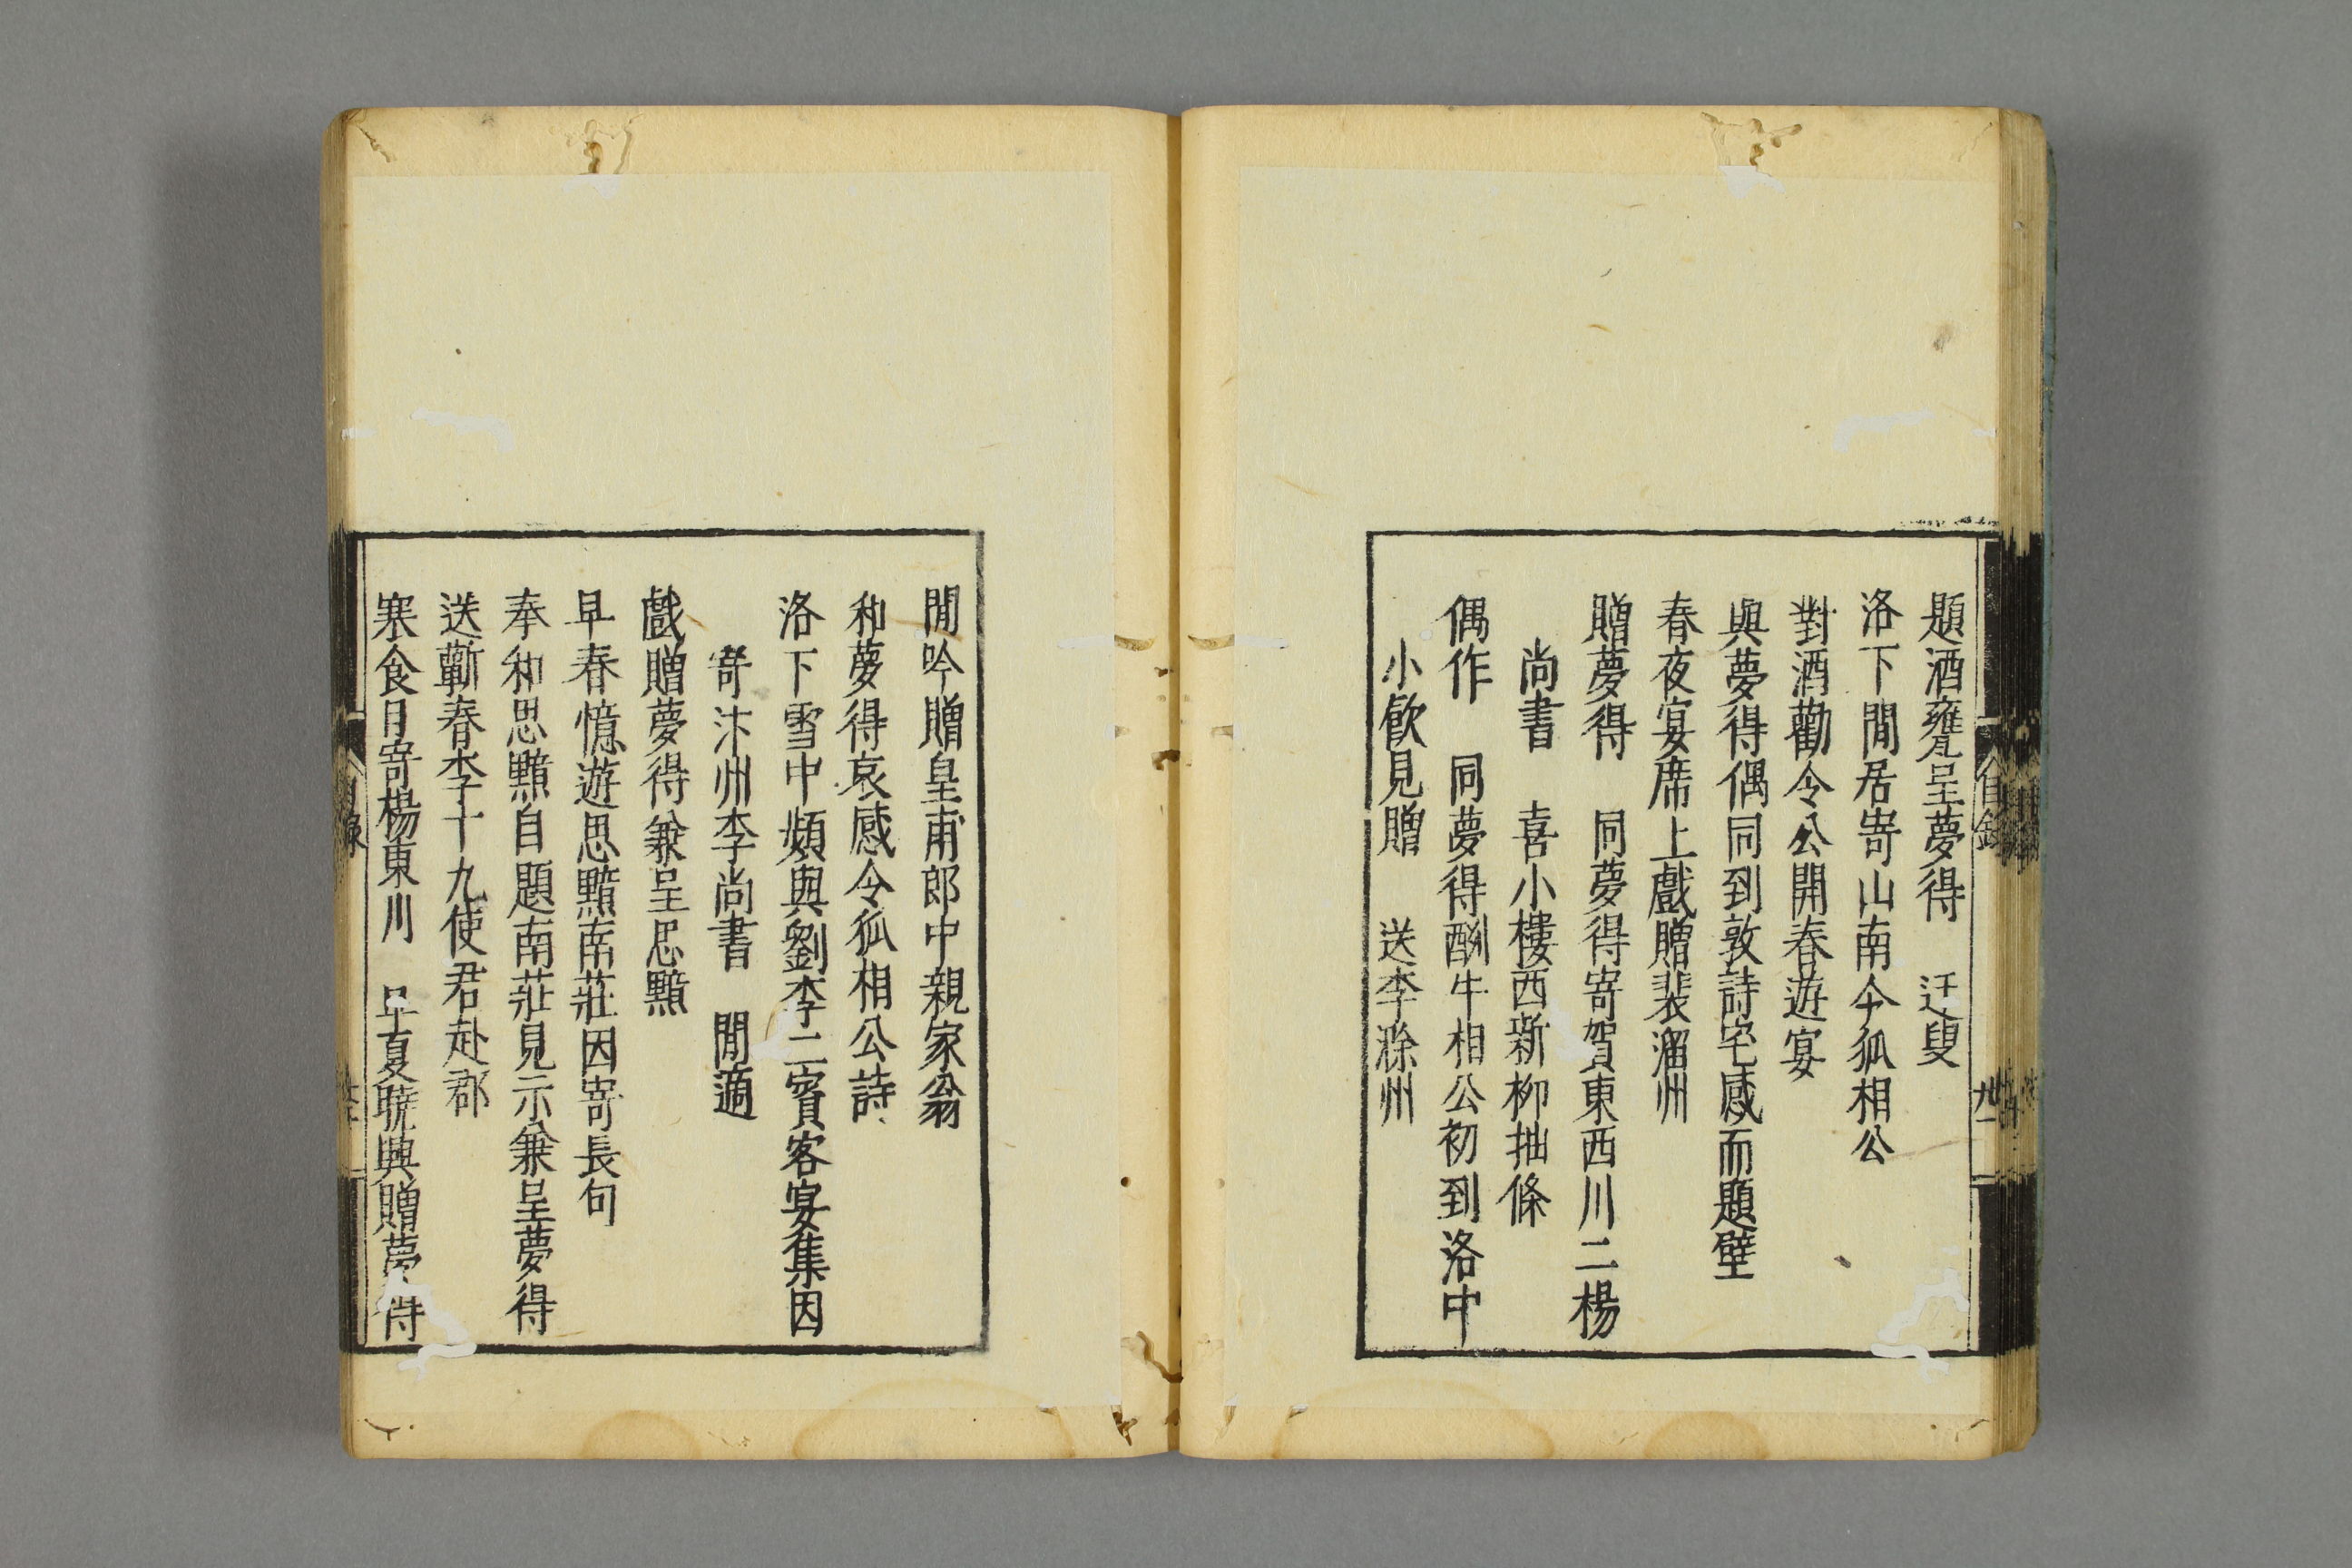 題酒甕呈夢得　迂叟
洛下閒居寄山南令狐相公
對酒勸令公開春遊宴
與夢得偶同到敦詩宅感而題壁
春夜宴席上戲贈裴淄州
贈夢得　同夢得寄賀東西川二楊
尚書　喜小樓西新柳抽條
偶作　同夢得酬牛相公初到洛中
小飲見贈　送李滁州
閒吟贈皇甫郎中親家翁
和夢得哀感令狐相公詩
洛下雪中頻與劉李二賓客宴集因
寄汴州李尚書　閒適
戲贈夢得兼呈思黯
早春憶遊思黯南莊因寄長句
奉和思黯自題南莊見示兼呈夢得
送蘄春李十九使君赴郡
寒食日寄楊東川　早夏曉興贈夢得